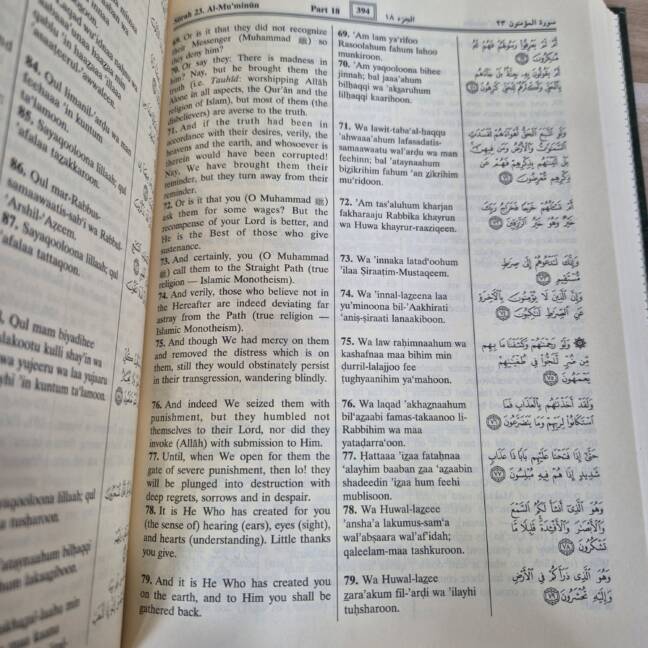 84. Qul limanil-'arḍu wa man
feehaaa 'in kuntum
ta'lamoon.
85. Sayaqooloona lillaah; qul
'afalaa tazakkaroon.
86. Qul mar-Rabbus-
samaawaatis-sab'i wa Rabbul-
'Arshil-'Azeem.
87. Sayaqooloona lillaah; qul
'afalaa tattaqoon.
Qul mam biyadihee
malakootu kulli shay'in wa
wa yujeeru wa laa yujaaru
'in kuntum ta'lamoon.
lillaah; qul
tusharoon.
bilḥaqqi
Sûrah 23. Al-Mu'minûn
Part 18
394
الجزء ١٨
سورة المؤمنون ٢٣
69. Or is it that they did not recognize
their Messenger (Muhammad ﷺ) so
they deny him?
70. Or say they: There is madness in
him? Nay, but he brought them the
truth (i.e. Tauhîd: worshipping Allâh
Alone in all aspects, the Qur'ân and the
religion of Islam), but most of them (the
disbelievers) are averse to the truth.
71. And if the truth had been in
accordance with their desires, verily, the
heavens and the earth, and whosoever is
therein would have been corrupted!
Nay, We have brought them their
reminder, but they turn away from their
reminder.
72. Or is it that you (O Muhammad ﷺ)
ask them for some wages? But the
recompense of your Lord is better, and
He is the Best of those who give
sustenance.
73. And certainly, you (O Muhammad
ﷺ) call them to the Straight Path (true
religion — Islamic Monotheism).
74. And verily, those who believe not in
the Hereafter are indeed deviating far
astray from the Path (true religion —
Islamic Monotheism).
75. And though We had mercy on them
and removed the distress which is on
them, still they would obstinately persist
in their transgression, wandering blindly.
76. And indeed We seized them with
punishment, but they humbled not
themselves to their Lord, nor did they
invoke (Allâh) with submission to Him.
77. Until, when We open for them the
gate of severe punishment, then lo! they
will be plunged into destruction with
deep regrets, sorrows and in despair.
78. It is He Who has created for you
(the sense of) hearing (ears), eyes (sight),
and hearts (understanding). Little thanks
you give.
79. And it is He Who has created you
on the earth, and to Him you shall be
gathered back.
69. 'Am lam ya'rifoo
Rasoolahum fahum lahoo
munkiroon.
70. 'Am yaqooloona bihee
jinnah; bal jaaa'ahum
bilḥaqqi wa 'akṣaruhum
lilḥaqqi kaarihoon.
71. Wa lawit-taba'al-ḥaqqu
'ahwaaa'ahum lafasadatis-
samaawaatu wal'arḍu wa man
feehinn; bal 'ataynaahum
bizikrihim fahum 'an zikrihim
mu'riḍoon.
72. 'Am tas'aluhum kharjan
fakharaaju Rabbika khayrun
wa Huwa khayrur-raaziqeen.
73. Wa 'innaka latad'oohum
'ilaa Ṣiraaṭim-Mustaqeem.
74. Wa 'innal-lazeena laa
yu'minoona bil-'Aakhirati
'aniṣ-ṣiraati lanaakiboon.
75. Wa law raḥimnaahum wa
kashafnaa maa bihim min
ḍurril-lalajjoo fee
tughyaanihim ya'mahoon.
76. Wa laqad 'akhaznaahum
bil'azaabi famas-takaanoo li-
Rabbihim wa maa
yataḍarra'oon.
77. Hattaaa 'izaa fataḥnaa
'alayhim baaban zaa 'azaabin
shadeedin 'izaa hum feehi
mublisoon.
78. Wa Huwal-lazeee
'ansha'a lakumus-sam'a
wal'abṣaara wal'af'idah;
qaleelam-maa tashkuroon.
79. Wa Huwal-lazee
zara'akum fil-'arḍi wa 'ilayhi
tuḥsharoon.
أَمْ لَمْ يَعْرِفُوا۟ رَسُولَهُمْ فَهُمْ لَهُۥ
مُنكِرُونَ ٦٩
أَمْ يَقُولُونَ بِهِۦ جِنَّةٌۢ بَلْ جَآءَهُم
بِٱلْحَقِّ وَأَكْثَرُهُمْ لِلْحَقِّ كَٰرِهُونَ ٧٠
وَلَوِ ٱتَّبَعَ ٱلْحَقُّ أَهْوَآءَهُمْ لَفَسَدَتِ
ٱلسَّمَٰوَٰتُ وَٱلْأَرْضُ وَمَن فِيهِنَّ
بَلْ أَتَيْنَٰهُم بِذِكْرِهِمْ فَهُمْ عَن
ذِكْرِهِم مُّعْرِضُونَ ٧١
أَمْ تَسْـَٔلُهُمْ خَرْجًا فَخَرَاجُ رَبِّكَ
خَيْرٌ وَهُوَ خَيْرُ ٱلرَّٰزِقِينَ ٧٢
وَإِنَّكَ لَتَدْعُوهُمْ إِلَىٰ صِرَٰطٍ
مُّسْتَقِيمٍ ٧٣
وَإِنَّ ٱلَّذِينَ لَا يُؤْمِنُونَ بِٱلْءَاخِرَةِ
عَنِ ٱلصِّرَٰطِ لَنَٰكِبُونَ ٧٤
۞ وَلَوْ رَحِمْنَٰهُمْ وَكَشَفْنَا مَا بِهِم
مِّن ضُرٍّ لَّلَجُّوا۟ فِى طُغْيَٰنِهِمْ
يَعْمَهُونَ ٧٥
وَلَقَدْ أَخَذْنَٰهُم بِٱلْعَذَابِ فَمَا
ٱسْتَكَانُوا۟ لِرَبِّهِمْ وَمَا يَتَضَرَّعُونَ ٧٦
حَتَّىٰٓ إِذَا فَتَحْنَا عَلَيْهِم بَابًا ذَا عَذَابٍ
شَدِيدٍ إِذَا هُمْ فِيهِ مُبْلِسُونَ ٧٧
وَهُوَ ٱلَّذِىٓ أَنشَأَ لَكُمُ ٱلسَّمْعَ
وَٱلْأَبْصَٰرَ وَٱلْأَفْـِٔدَةَ قَلِيلًا مَّا
تَشْكُرُونَ ٧٨
وَهُوَ ٱلَّذِى ذَرَأَكُمْ فِى ٱلْأَرْضِ
وَإِلَيْهِ تُحْشَرُونَ ٧٩